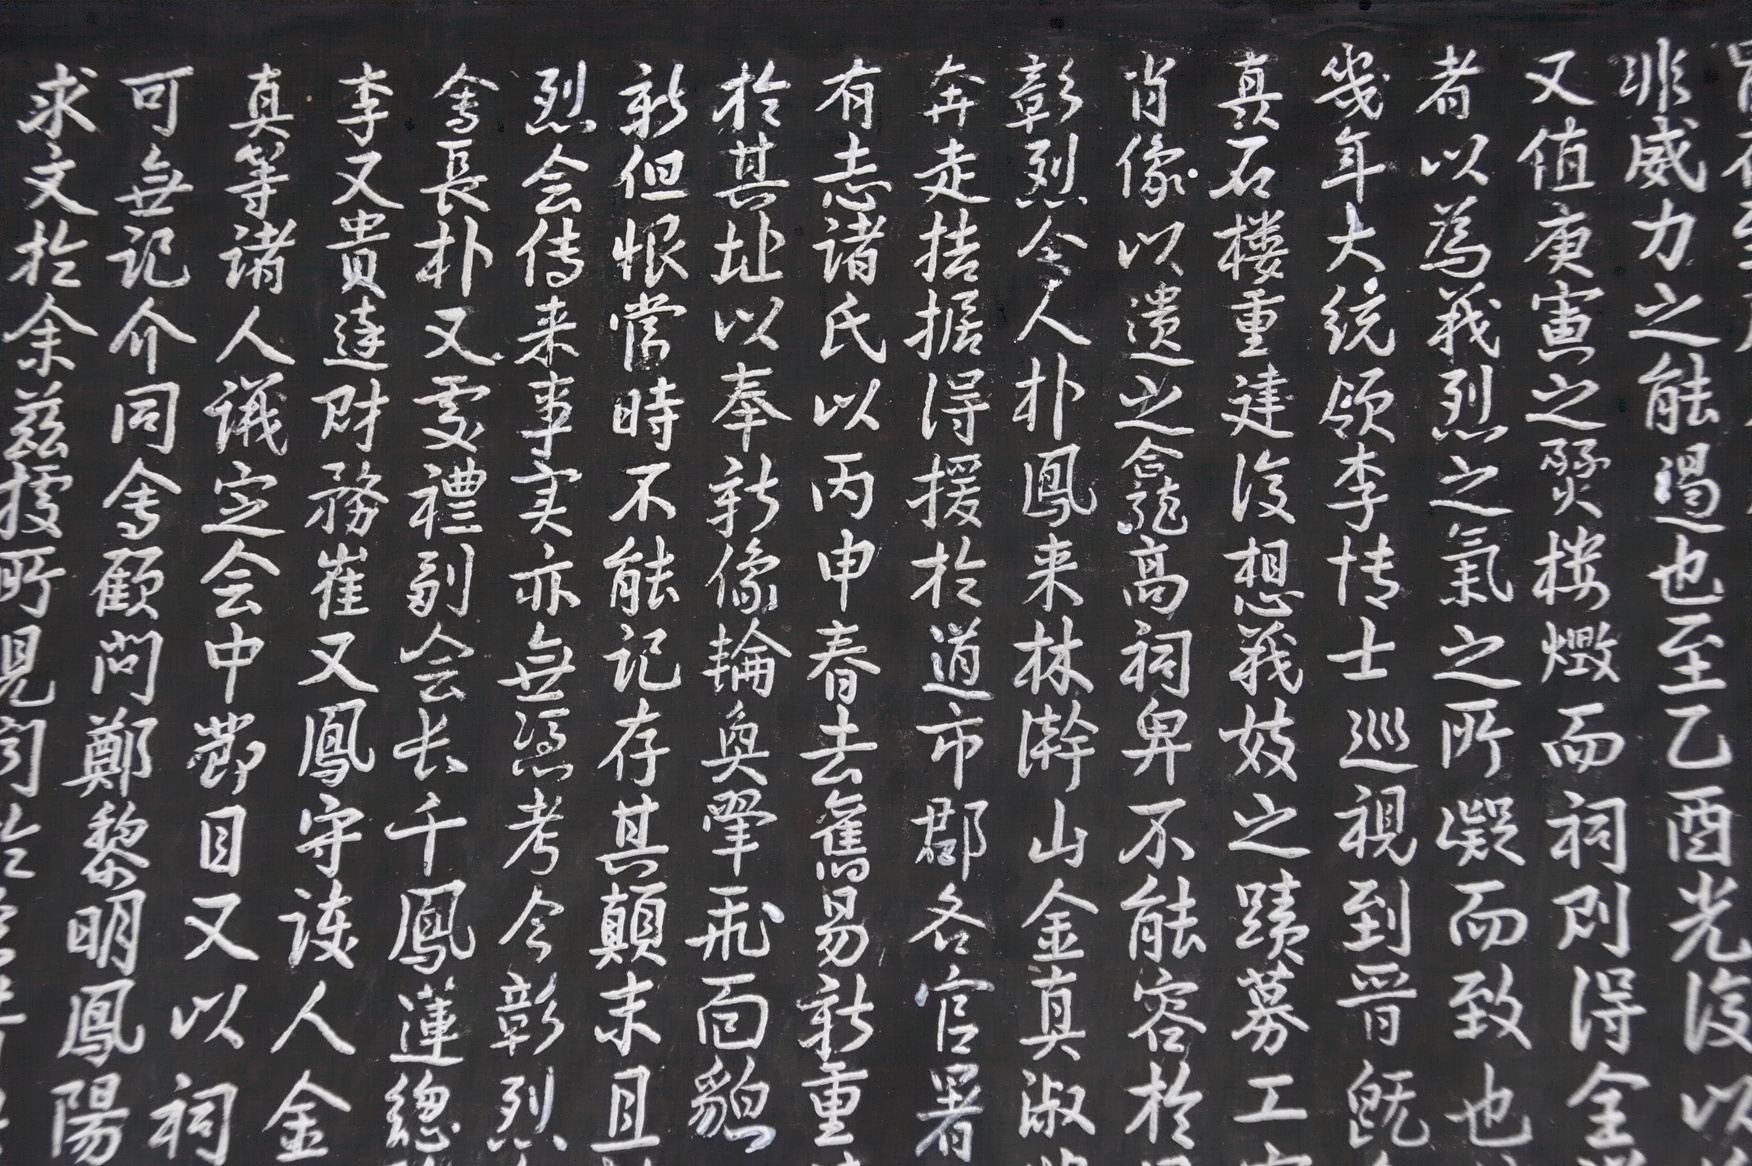 非威力之能遏也至乙酉光復以
又值庚寅之燹火楼燬而祠則得全
者以為義烈之氣之所凝而致也
幾年大統領李情士巡視到晋既
真石楼重建後想義妓之蹟募工
肖像以遺之龕高祠卑不能容於
彰烈会人朴鳳来林澣山金真淑
奔走拮据得援於道市郡各官署
有志諸氏以丙申春去舊易新重
於其址以奉新像輪奐翬飛面貌
新但恨當時不能記存其顛末且
烈会传来事实亦無憑考今彰烈
會長朴又雯禮副会长千鳳蓮總
李又貴達財務崔又鳳守諫人金
真等諸人議定会中節目又以祠
可無記介同會顧問鄭黎明鳳陽
求文於余茲據所見